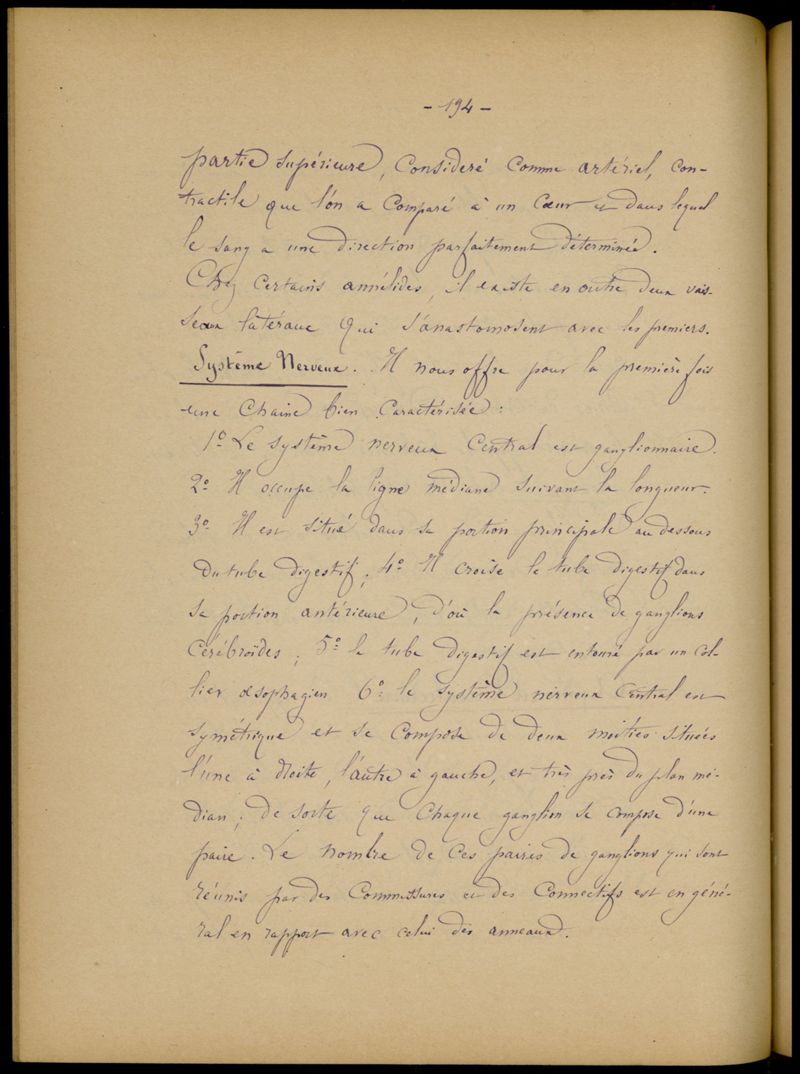 - 194 -
partie supérieure, consideré comme artériel, con-
tractile que l'on a comparé à un cœur et dans lequel
le sang a une direction parfaitement déterminée.
Chez certains annélides, il existe en outre deux vais-
seaux latéraux qui s'anastomosent avec les premiers.
Système Nerveux. Il nous offre pour la première fois
une chaine bien caractérisée :
1º Le système nerveux central est ganglionnaire.
2º Il occupe la ligne médiane suivant la longueur.
3º Il est situé dans sa portion principale au dessous
du tube digestif ; 4º Il croise le tube digestif dans
sa portion antérieure, d'où la présence de ganglions
cérébroïdes ; 5º le tube digestif est entouré par un col-
lier œsophagien 6º le système nerveux central est
symétrique et se compose de deux moitiés situées
l'une à droite, l'autre à gauche, et très près du plan mé-
dian ; de sorte que chaque ganglion se compose d'une
paire. Le nombre de ces paires de ganglions qui sont
réunis par des commissures et des connectifs est en géné-
ral en rapport avec celui des anneaux.